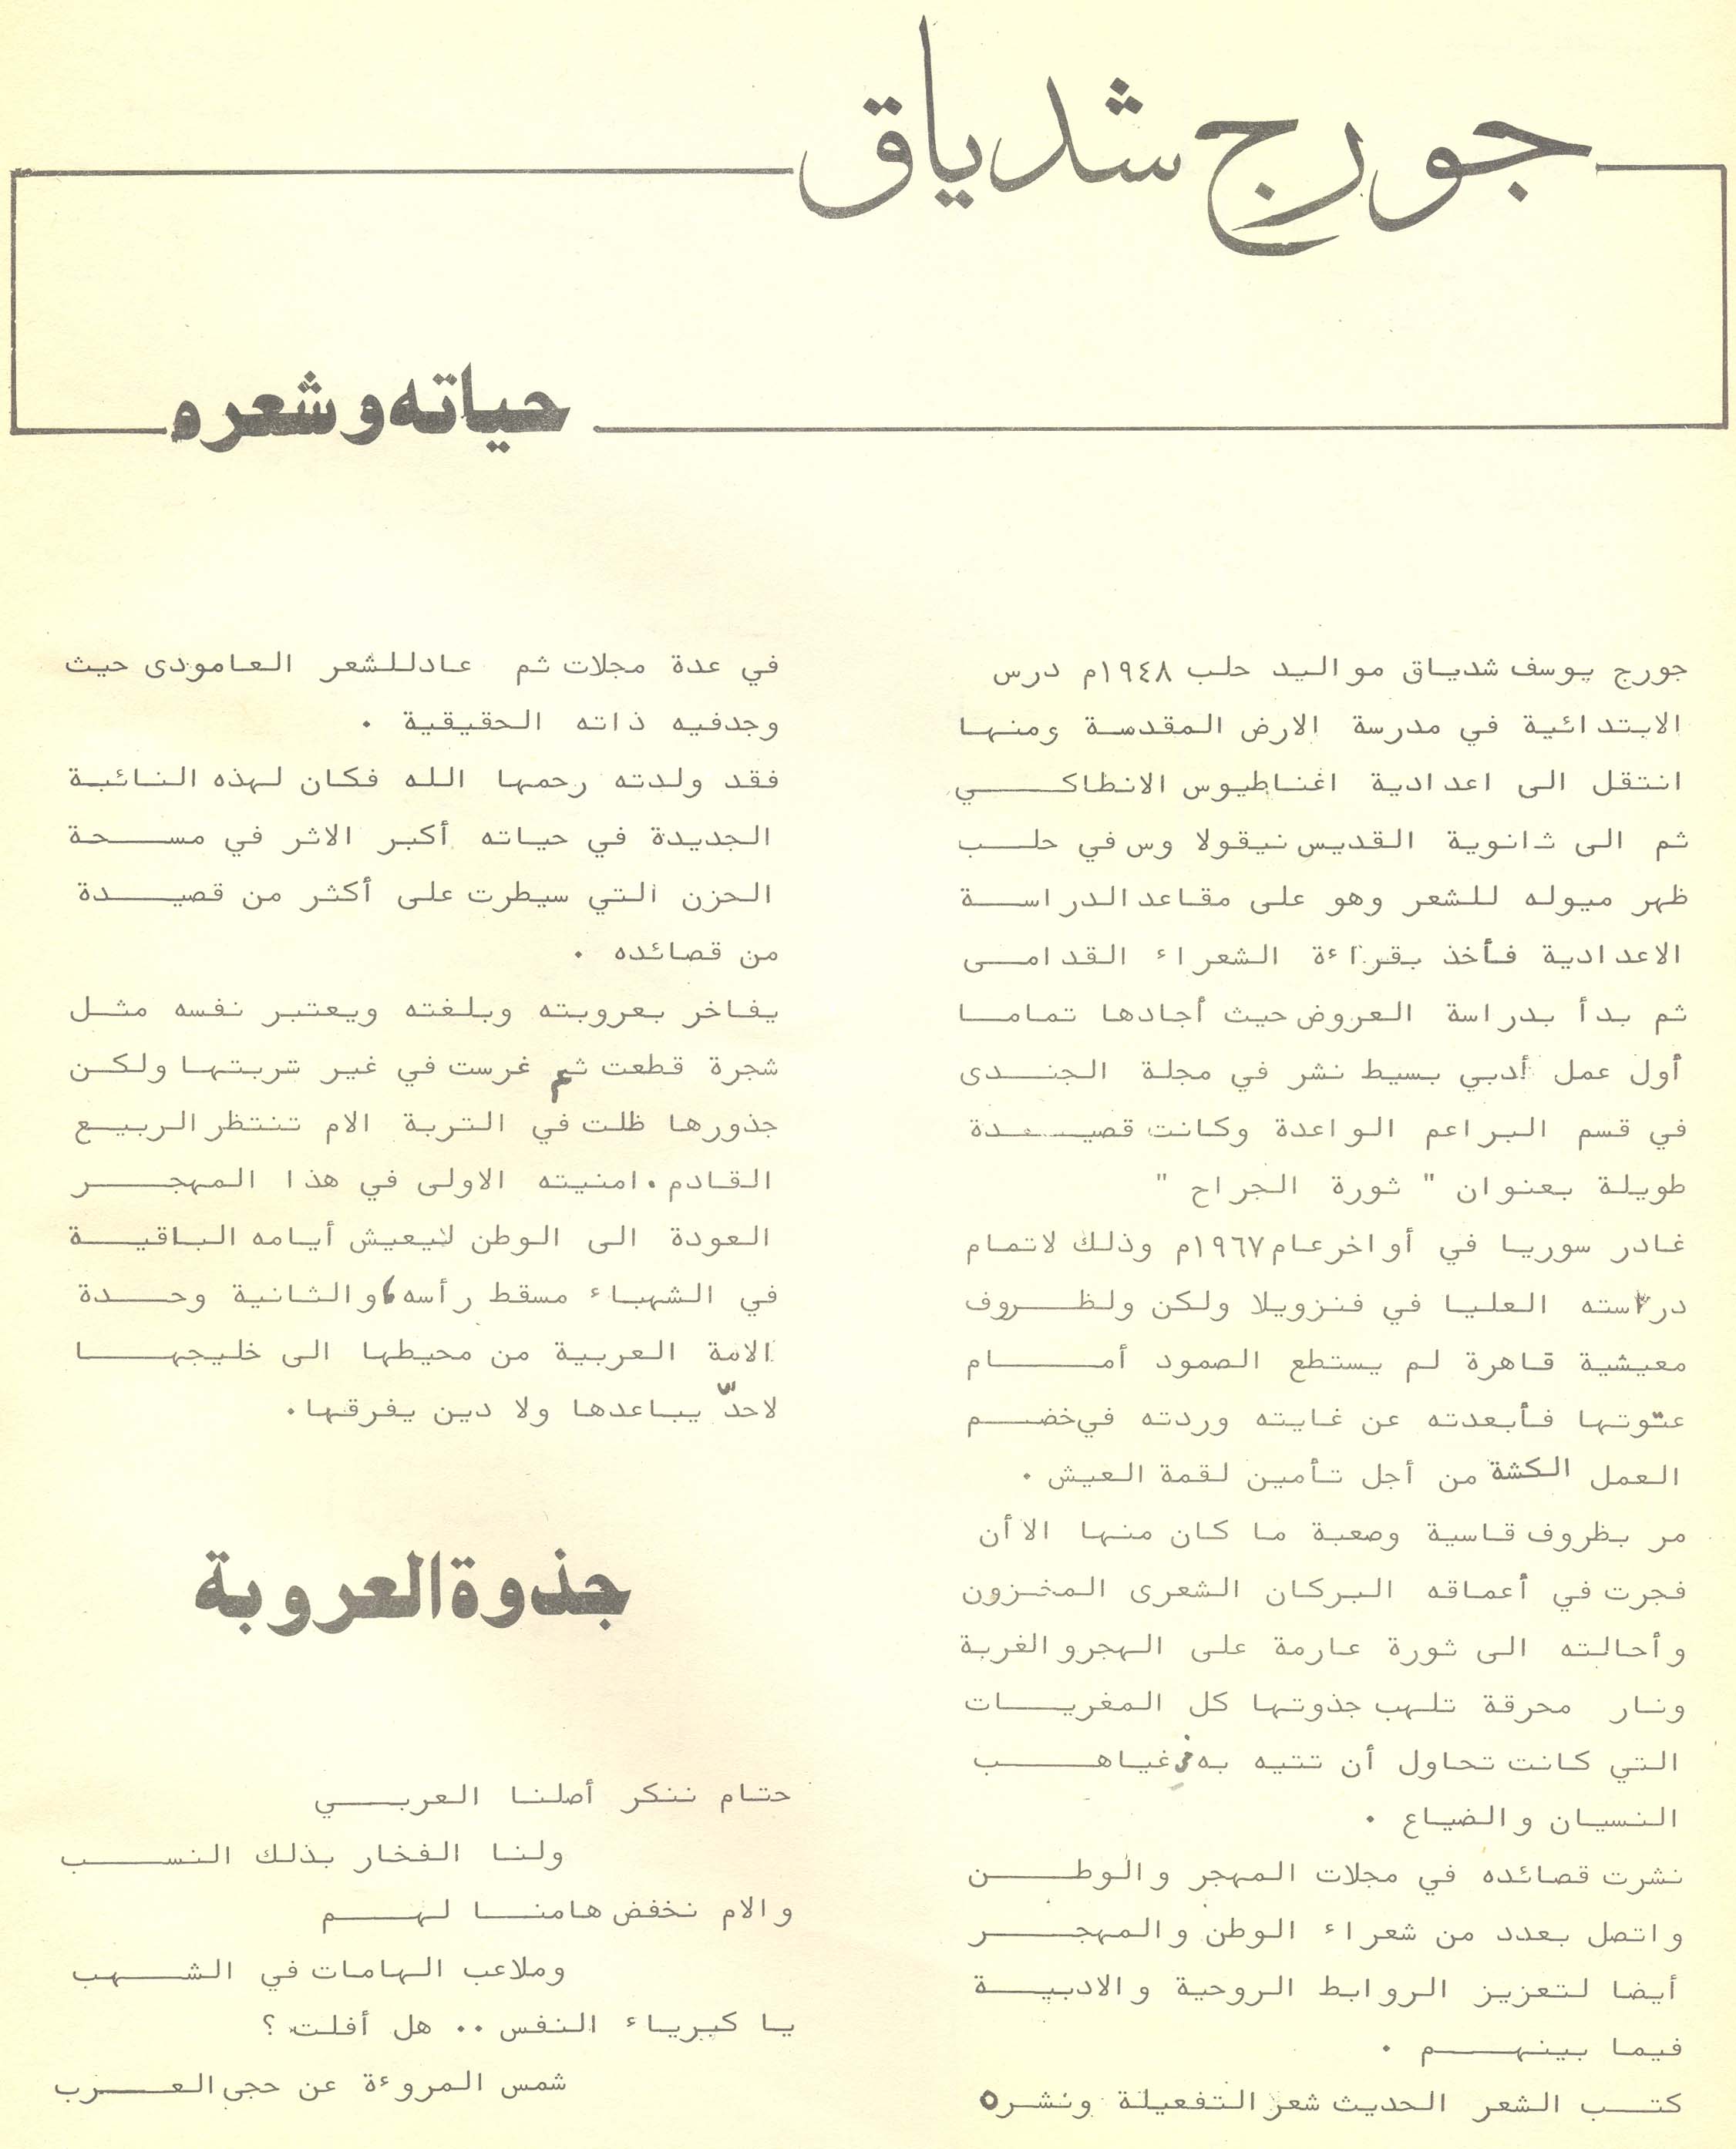 جورج شدياق
حياته وشعره
جورج يوسف شدياق مواليد حلب ١٩٤٨م درس
الابتدائية في مدرسة الارض المقدسة ومنها
انتقل الى اعدادية اغناطيوس الانطاكي
ثم الى ثانوية القديس نيقولا وس في حلب
ظهر ميوله للشعر وهو على مقاعد الدراسة
الاعدادية فأخذ بقراءة الشعراء القدامى
ثم بدأ بدراسة العروض حيث أجادها تماما
أول عمل أدبي بسيط نشر في مجلة الجندى
في قسم البراعم الواعدة وكانت قصيدة
طويلة بعنوان " ثورة الجراح "
غادر سوريا في أواخر عام ١٩٦٧م وذلك لاتمام
دراسته العليا في فنزويلا ولكن ولظروف
معيشية قاهرة لم يستطع الصمود أمام
عتوتها فأبعدته عن غايته وردته في خضم
العمل الكشة من أجل تأمين لقمة العيش .
مر بظروف قاسية وصعبة ما كان منها الا أن
فجرت في أعماقه البركان الشعرى المخزون
وأحالته الى ثورة عارمة على الهجر والغربة
ونار محرقة تلهب جذوتها كل المغريات
التي كانت تحاول أن تتيه به في غياهب
النسيان والضياع .
نشرت قصائده في مجلات المهجر والوطن
واتصل بعدد من شعراء الوطن والمهجر
أيضا لتعزيز الروابط الروحية والادبية
فيما بينهم .
كتب الشعر الحديث شعر التفعيلة ونشره
في عدة مجلات ثم عاد للشعر العامودى حيث
وجد فيه ذاته الحقيقية .
فقد ولدته رحمها الله فكان لهذه النائبة
الجديدة في حياته أكبر الاثر في مسحة
الحزن التي سيطرت على أكثر من قصيدة
من قصائده .
يفاخر بعروبته وبلغته ويعتبر نفسه مثل
شجرة قطعت ثم غرست في غير تربتها ولكن
جذورها ظلت في التربة الام تنتظر الربيع
القادم . امنيته الاولى في هذا المهجر
العودة الى الوطن ليعيش أيامه الباقية
في الشهباء مسقط رأسه، والثانية وحدة
الامة العربية من محيطها الى خليجها
لاحدّ يباعدها ولا دين يفرقها .
جذوة العروبة
حتام ننكر أصلنا العربي
ولنا الفخار بذلك النسب
والام نخفض هامنا لهم
وملاعب الهامات في الشهب
يا كبرياء النفس .. هل أفلت ؟
شمس المروءة عن حجى العرب